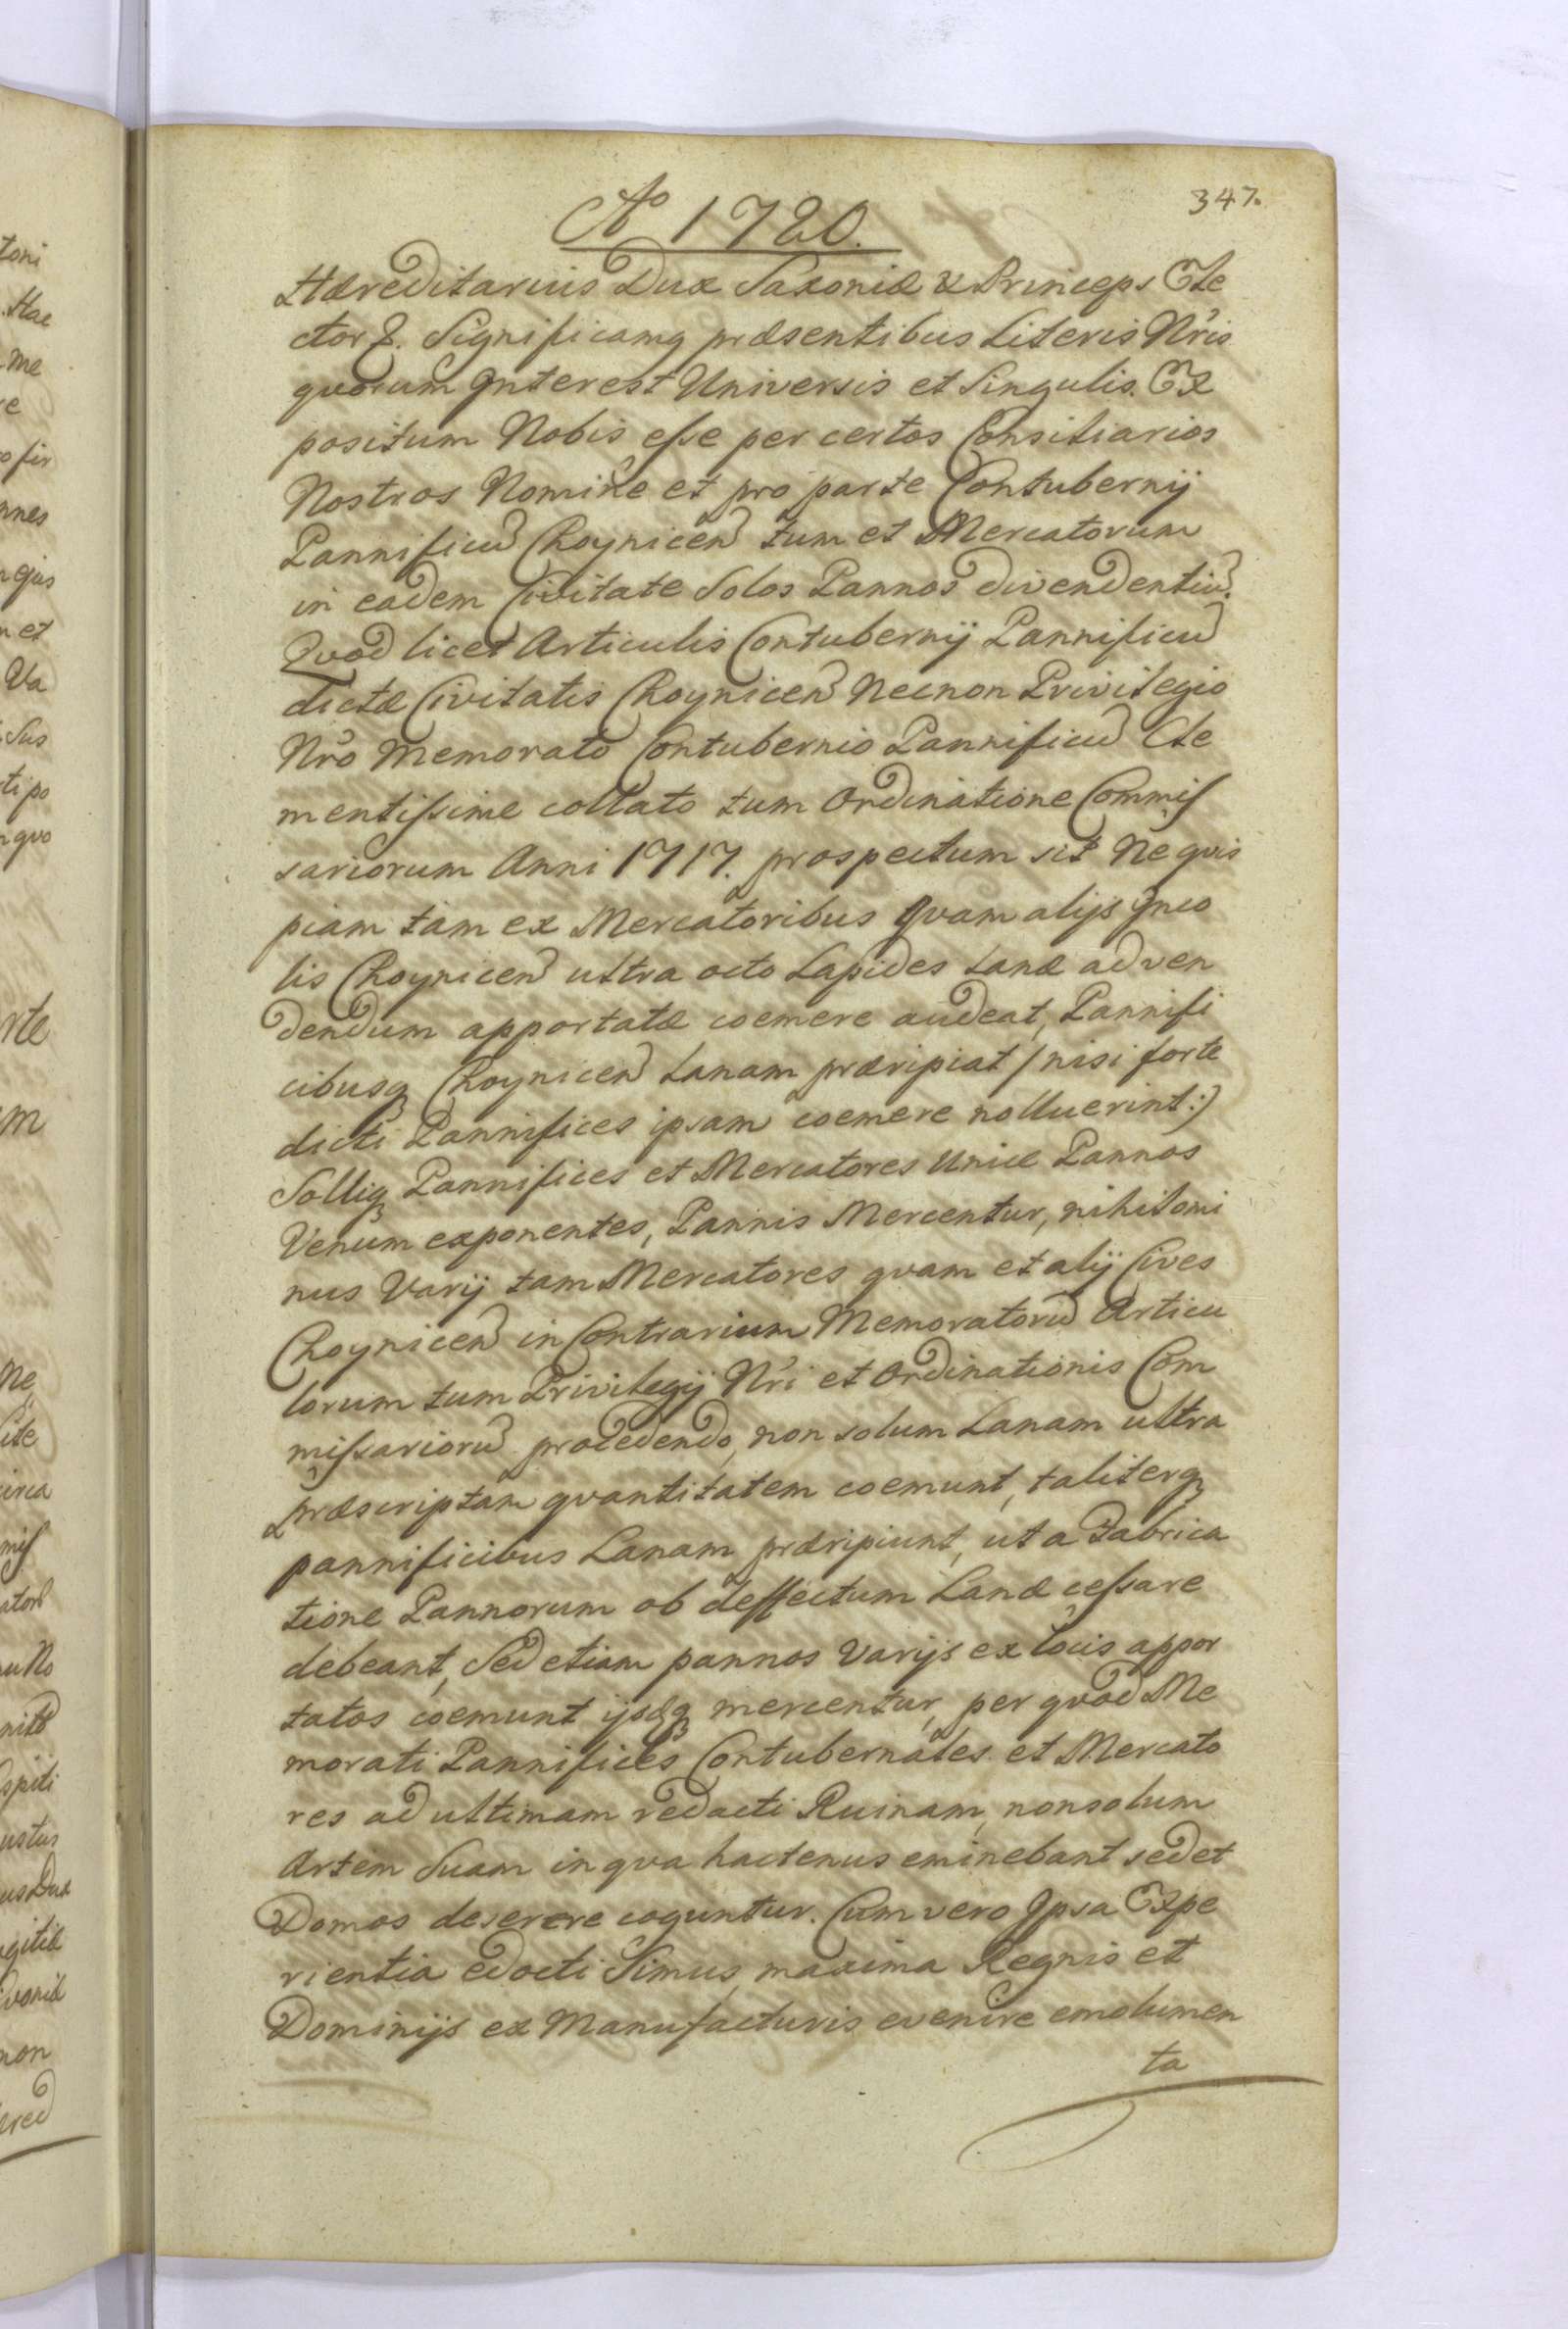 347.
Aᵒ 1720.
Hæreditarius Dux Saxoniæ & Princeps Ele
ctor &. Significamq præsentibus Literis Nr̃is
quorum Interest Universis et Singulis. Ex
positum Nobis eſse per certos Consiliarios
Nostros Nomine et pro parte Contubernij
Pannificũ Choynicen̄ tum et Mercatorum
in eadem Civitate Solos Pannos divendentiũ.
Quod licet Articulis Contubernij Pannificũ
dictæ Civitatis Choynicen̄ Necnon Privilegio
Nr̃o Memorato Contubernio Pannificũ Cle
mentiſsime collato tum Ordinatione Commiſ
sariorum Anni 1717. prospectum sit Ne quis
piam tam ex Mercatoribus Quam alijs Inco
lis Choynicen̄ ultra octo Lapides Lanæ ad ven
dendum apportatæ coemere audeat, Pannifi
cibusq Choynicen̄ Lanam præripiat /nisi forte
dicti Pannifices ipsam coemere nolluerint:)
Solliq Pannifices et Mercatores Unice Pannos
Venum exponentes, Pannis Mercentur, nihilomi
nus Varij tam Mercatores quam et alij Cives
Choynicen̄ in Contrarium Memoratorũ Articu
lorum tum Privilegij Nr̃i et Ordinationis Com
miſsariorũ procedendo, non solum Lanam ultra
præscriptam quantitatem coemunt, taliterq
pannificibus Lanam præripiunt, ut a Fabrica
tione Pannorum ob deffectum Lanæ ceſsare
debeant, Sed etiam pannos Varijs ex locis appor
tatos coemunt ijsdq mercentur, per quod Me
morati Pannifices Contubernales et Mercato
res ad ultimam redacti Ruinam, non solum
Artem Suam in qva hactenus eminebant sed et
Domos deserere coguntur. Cum vero Ipsa Expe
rientia edocti Simus, maxima Regnis et
Dominijs ex Manufacturis evenire emolumen
ta